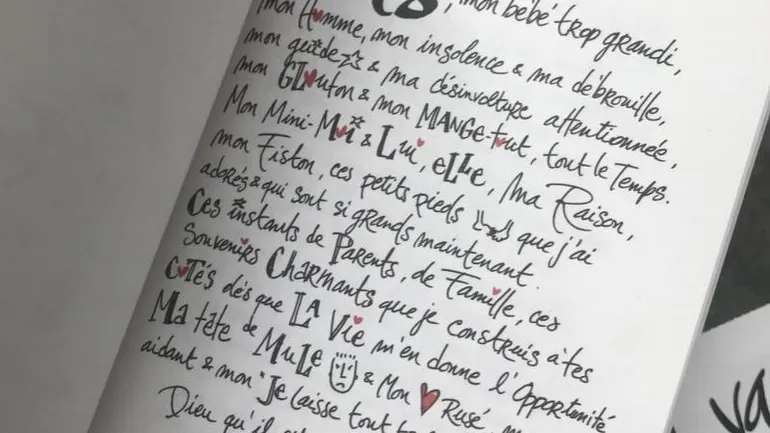 , mon bébé trop grandi,
mon Homme, mon insolence & ma débrouille,
mon guide & ma désinvolture attentionnée,
mon GLOuton & mon MANGE-tout, tout le Temps.
Mon Mini-Moi & Lui, elle, Ma Raison,
mon Fiston, ces petits pieds que j'ai
adorés & qui sont si grands maintenant.
Ces instants de Parents, de Famille, ces
Souvenirs Charmants que je construis à tes
CôTés dès que LA Vie m'en donne l'Opportunité
Ma tête de MuLe & Mon Rusé,
aidant & mon "Je laisse tout
Dieu qu'il
va